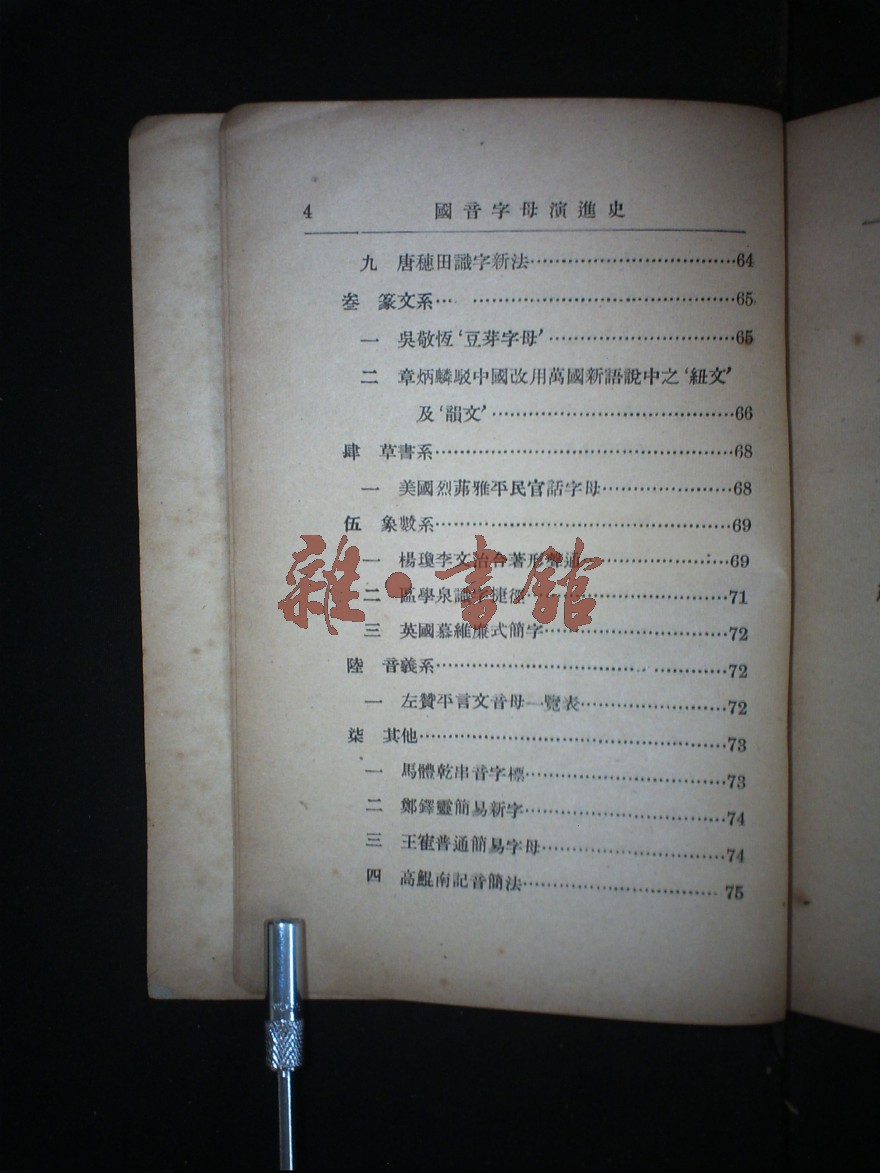 4 國音字母演進史
九 唐穗田識字新法……………………………64
叁 篆文系…… ……………………………………65
一 吳敬恆‘豆芽字母’…………………………65
二 章炳麟駁中國改用萬國新語說中之‘紐文’
及‘韻文’…………………………………66
肆 草書系…………………………………………68
一 美國烈茀雅平民官話字母…………………68
伍 象數系…………………………………………69
一 楊瓊李文治合著形聲通……………………69
二 區學泉識字捷徑……………………………71
三 英國慕維廉式簡字…………………………72
陸 音義系…………………………………………72
一 左贊平言文音母一覽表……………………72
柒 其他……………………………………………73
一 馬體乾串音字標……………………………73
二 鄭鐸靈簡易新字……………………………74
三 王崔普通簡易字母…………………………74
四 高鯤南記音簡法……………………………75
雜·書館